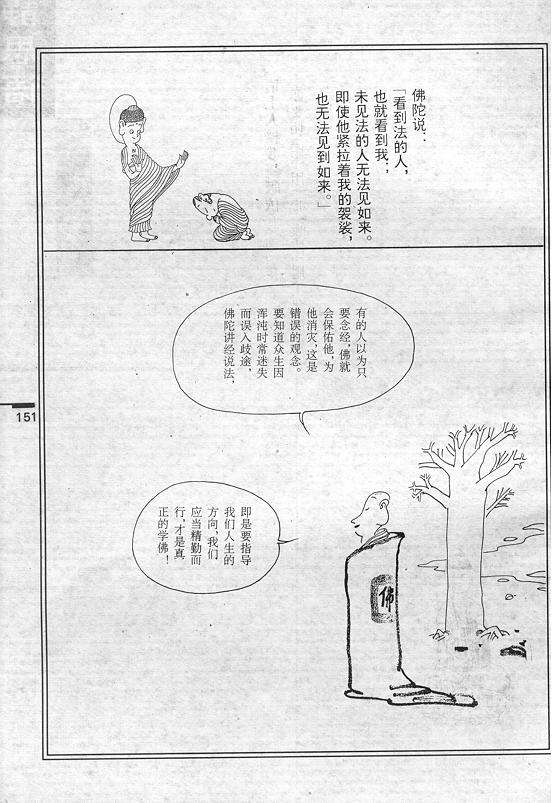 佛陀说：
「看到法的人，
也就看到我，
未见法的人无法见如来。
即使他紧拉着我的袈裟，
也无法见到如来。」
有的人以为只
要念经，佛就
会保佑他，为
他消灾，这是
错误的观念。
要知道众生因
浑沌时常迷失
而误入歧途，
佛陀讲经说法，
即是要指导
我们人生的
方向，我们
应当精勤而
行，才是真
正的学佛！
佛
151